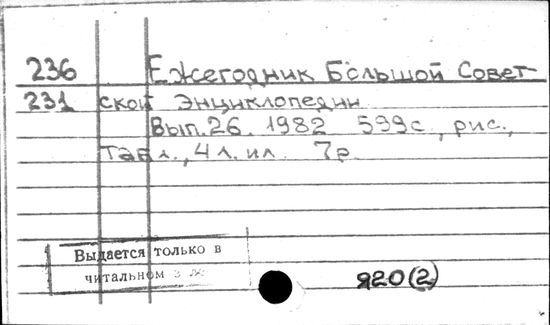 236 Ежегодник Большой Совет-
231 ской энциклопедии
Вып. 26. 1982 599с., рис.,
табл., 4 л. ил. 7р.
Выдается только в
читальном
Я20(2)